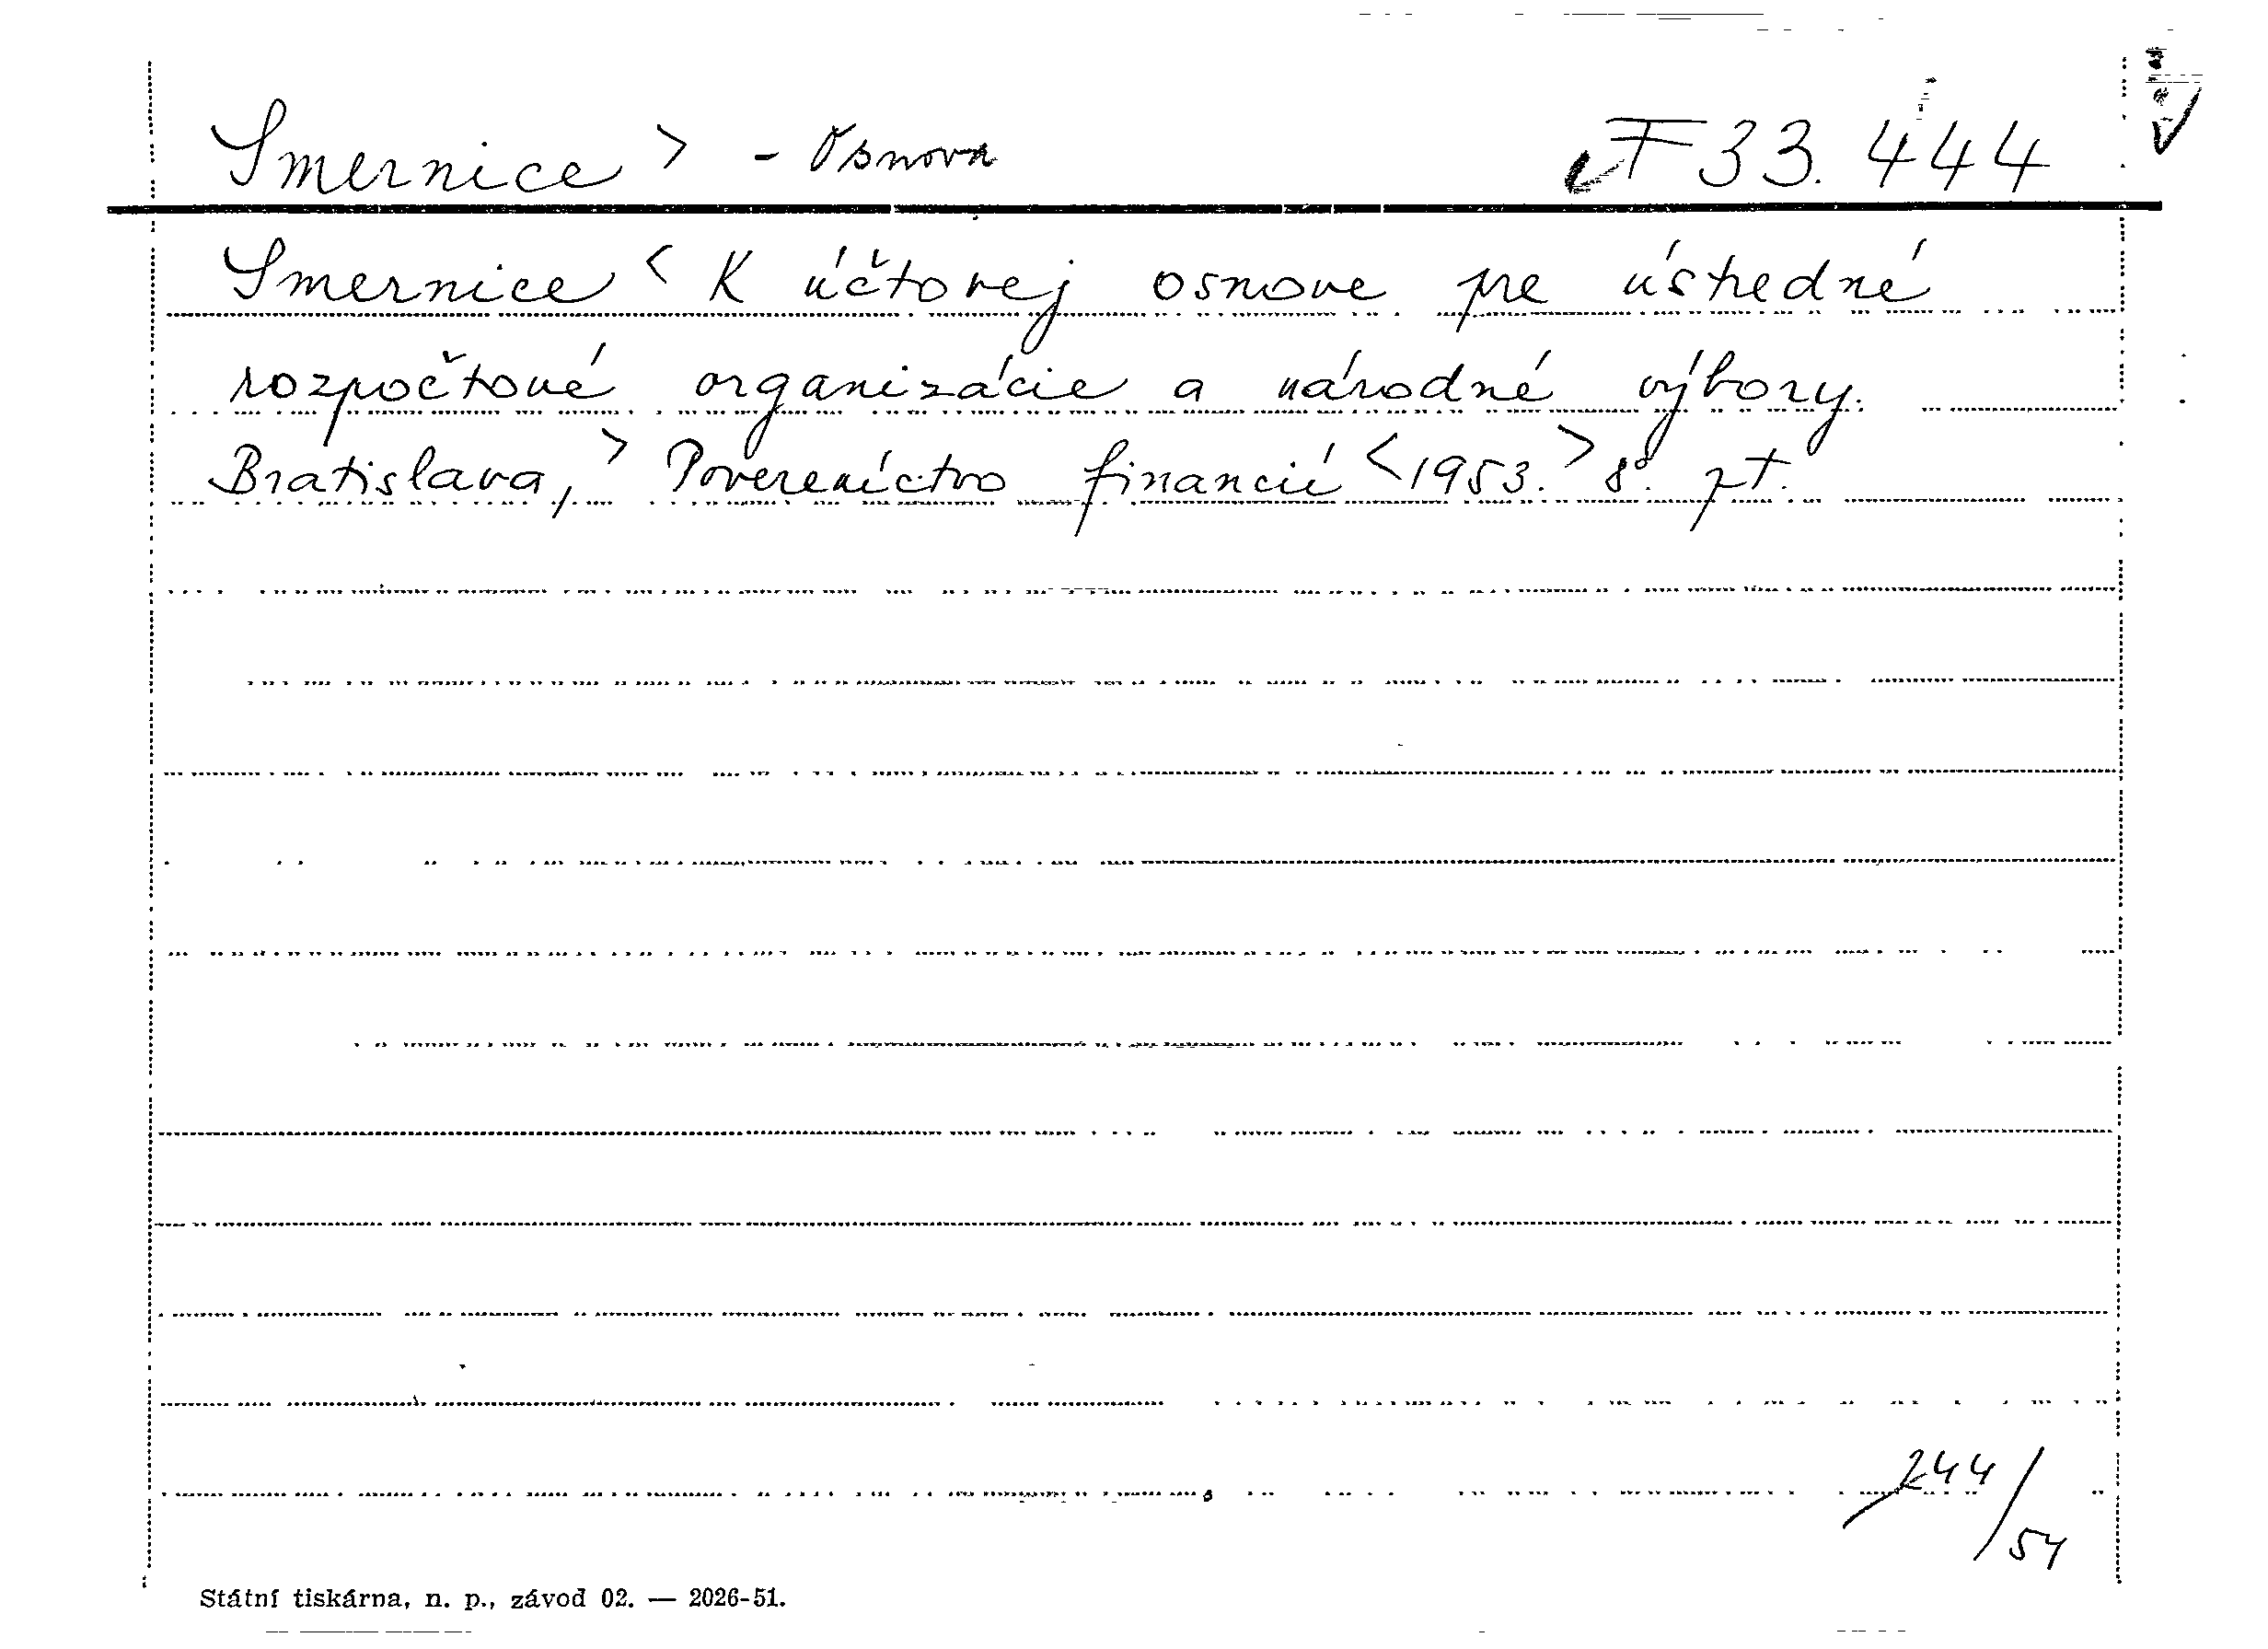 Smernice > - Osnova F 33.444
Smernice < K účtovej osnove pre ústredné
rozpočtové organizácie a národné výbory.
Bratislava, > Povereníctvo financií < 1953. > 8°. zt.
244/54
Státní tiskárna, n. p., závod 02. — 2026-51.